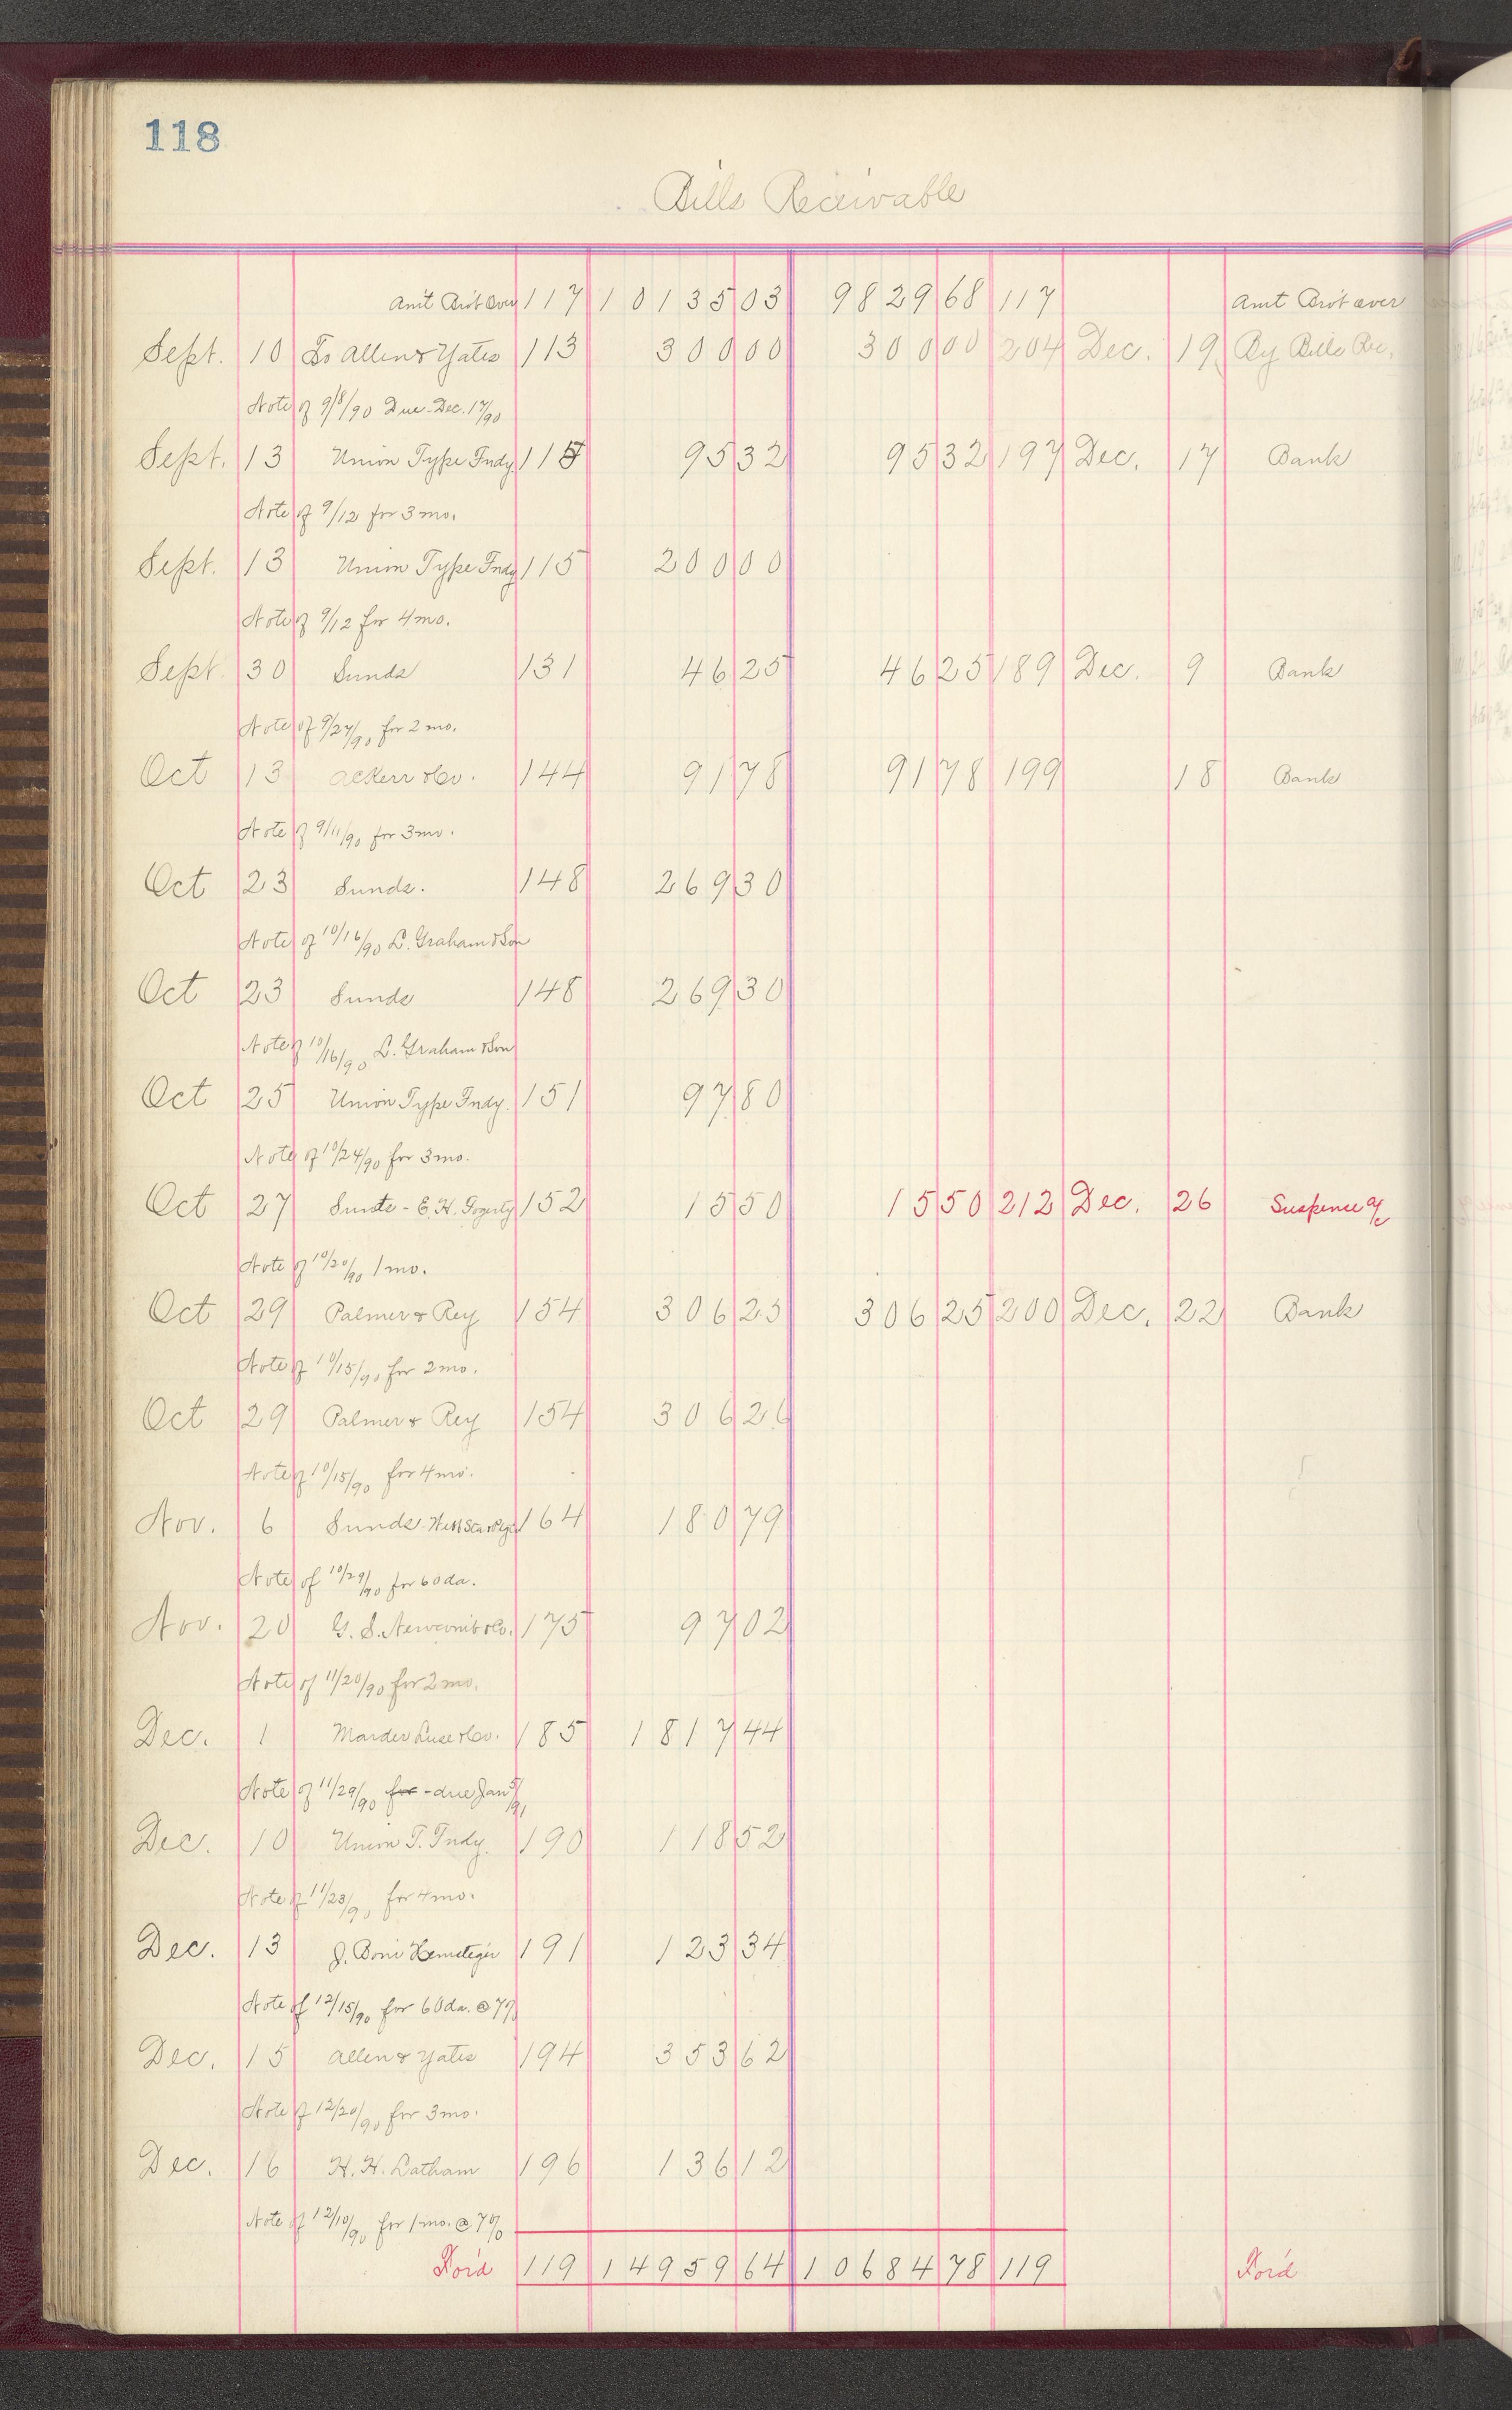 118
Bills Receivable
Am't Bro't Over 117 10135 03 9829 68 117 Amt Bro't over
Sept. 10 To Allen & Yates 113 300 00 300 00 204 Dec. 19 By Bills Rec.
Note of 9/8/90 Due Dec. 17/90
Sept. 13 Union Type Fndy 115 95 32 95 32 197 Dec. 17 Bank
Note of 9/12 for 3 mo.
Sept. 13 Union Type Fndy 115 200 00
Note of 9/12 for 4 mo.
Sept 30 Sunds 131 46 25 46 25 189 Dec. 9 Bank
Note of 9/27/90 for 2 mo.
Oct 13 & Co. 144 91 78 91 78 199 18 Bank
Note of 9/11/90 for 3 mo.
Oct 23 Sunds. 148 269 30
Note of 10/16/90 L. Graham & Son
Oct 23 Sunds 148 269 30
Note of 10/16/90 L. Graham & Son
Oct 25 Union Type Fndy. 151 97 80
Note of 10/24/90 for 3 mo.
Oct 27 - E. H. Fogerty 152 15 50 15 50 212 Dec. 26 Suspence a/c
Note of 10/20/90 1 mo.
Oct 29 Palmer & Rey 154 306 25 306 25 200 Dec. 22 Bank
Note of 10/15/90 for 2 mo.
Oct 29 Palmer & Rey 154 306 26
Note of 10/15/90 for 4 mo.
Nov. 6 Sunds 164 180 79
Note of 10/29/90 for 60 da.
Nov. 20 G. S. Newcomb & Co. 175 97 02
Note of 11/20/90 for 2 mo.
Dec. 1 Marder Luse & Co. 185 1817 44
Note of 11/29/90 for - due Jan 5/91
Dec. 10 Union T. Fndy. 190 118 52
Note of 11/28/90 for 4 mo.
Dec. 13 J. 191 123 34
Note of 12/15/90 for 60 da. @ 7%
Dec. 15 Allen & Yates 194 353 62
Note of 12/20/90 for 3 mo.
Dec. 16 H. H. Latham 196 136 12
Note of 12/10/90 for 1 mo. @ 7%
For'd 119 14959 64 10684 78 119 For'd